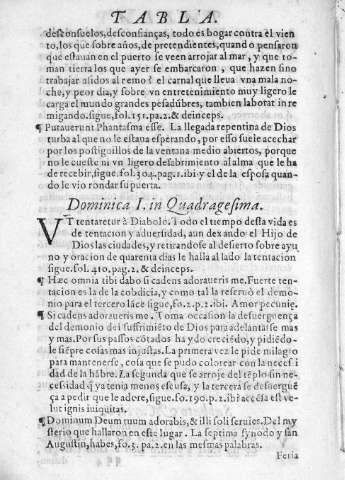 TABLA.
desconsuelos, desconfianças, todo es bogar contra el vien
to, los que sobre años, de pretendientes, quando pensaron
que estauan en el puerto se veen arrojar al mar, y que to-
man tierra los que ayer se embarcaron, que hazen sino
trabajar asidos al remo? el carnal que lleua vna mala no-
che, y peor dia, y sobre vn entretenimiento muy ligero le
carga el mundo grandes pesadũbres, tambien laborat in re
migando. sigue, fol. 151. pa. 2. & deinceps.
¶ Putauerunt Phantasma esse. La llegada repentina de Dios
turba al que no le estaua esperando, por esso suele acechar
por los postiguillos de la ventana medio abiertos, porque
no le cueste ni vn ligero desabrimiento al alma que le ha
de recebir, sigue, fol. 304. pag. 1. ibi y el de la esposa quan-
do le vio rondar su puerta.
Dominica I. in Quadragesima.
VT tentaretur à Diabolo. Todo el tiempo desta vida es
de tentacion y aduersidad, aun dexando el Hijo de
Dios las ciudades, y retirandose al desierto sobre ayu
no y oracion de quarenta dias le halla al lado la tentacion
sigue. fol. 410. pag. 2. & deinceps.
¶ Hæc omnia tibi dabo si cadens adoraueris me. Fuerte ten-
tacion es la de la cobdicia, y como tal la reseruò el demo-
nio para el tercero lãce sigue, fo. 2. p. 2. ibi. Amor pecunię.
¶ Si cadens adoraueris me. Toma occasion la desuerguença
del demonio del suffrimiẽto de Dios para adelantarse mas
y mas. Por sus passos cõtados ha ydo creciẽdo, y pidiẽdo-
le siẽpre cosas mas injustas. La primera vez le pide milagro
para mantenerse, cosa que se pudo colorear con la neces i
dad de la hãbre. La segunda que se arroje del tẽplo sin ne-
cessidad q̃ ya tenia menos escusa, y la tercera se desuerguẽ
ça a pedir que le adore, sigue, fo. 190. p. 2. ibi accesa est ve-
lut ignis iniquitas.
¶ Dominum Deum tuum adorabis, & illi soli seruies. Del my
sterio que hallaron en este lugar. La septima synodo y san
Augustin, habes, fo. 3. pa. 2. en las mesmas palabras.
Feria